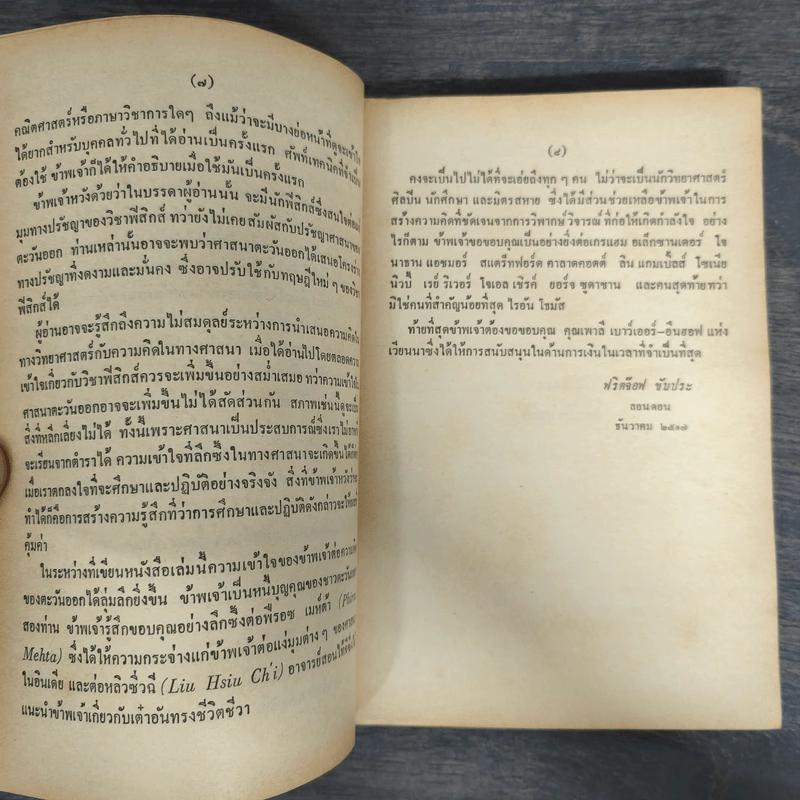 (๗)
คณิตศาสตร์หรือภาษาวิชาการใดๆ ถึงแม้ว่าจะมีบางย่อหน้าที่ดูจะเข้าใจ
ได้ยากสำหรับบุคคลทั่วไปที่ได้อ่านเป็นครั้งแรก ศัพท์เทคนิคที่จำเป็น
ต้องใช้ ข้าพเจ้าก็ได้ให้คำอธิบายเมื่อใช้มันเป็นครั้งแรก
ข้าพเจ้าหวังด้วยว่าในบรรดาผู้อ่านนั้น จะมีนักฟิสิกส์ซึ่งสนใจต่อ
มุมทางปรัชญาของวิชาฟิสิกส์ ทว่ายังไม่เคยสัมผัสกับปรัชญาศาสนาของ
ตะวันออก ท่านเหล่านั้นอาจจะพบว่าศาสนาตะวันออกได้เสนอโครงร่าง
ทางปรัชญาที่งดงามและมั่นคง ซึ่งอาจปรับใช้กับทฤษฎีใหม่ ๆ ของวิชา
ฟิสิกส์ได้
ผู้อ่านอาจจะรู้สึกถึงความไม่สมดุลย์ระหว่างการนำเสนอความคิดใน
ทางวิทยาศาสตร์กับความคิดในทางศาสนา เมื่อได้อ่านไปโดยตลอดความ
เข้าใจเกี่ยวกับวิชาฟิสิกส์ควรจะเพิ่มขึ้นอย่างสม่ำเสมอ ทว่าความเข้าใจใน
ศาสนาตะวันออกอาจจะเพิ่มขึ้นไม่ได้สัดส่วนกัน สภาพเช่นนี้ดูจะเป็น
สิ่งที่หลีกเลี่ยงไม่ได้ ทั้งนี้เพราะศาสนาเป็นประสบการณ์ซึ่งเราไม่อาจ
จะเรียนจากตำราได้ ความเข้าใจที่ลึกซึ้งในทางศาสนาจะเกิดขึ้นได้ก็
เมื่อเราตกลงใจที่จะศึกษาและปฏิบัติอย่างจริงจัง สิ่งที่ข้าพเจ้าหวังว่าจะ
ทำได้ก็คือการสร้างความรู้สึกที่ว่าการศึกษาและปฏิบัติดังกล่าวจะให้ผล
คุ้มค่า
ในระหว่างที่เขียนหนังสือเล่มนี้ความเข้าใจของข้าพเจ้าต่อความคิด
ของตะวันออกได้ลุ่มลึกยิ่งขึ้น ข้าพเจ้าเป็นหนี้บุญคุณของชาวตะวันออก
สองท่าน ข้าพเจ้ารู้สึกขอบคุณอย่างลึกซึ้งต่อฟีรอซ เมห์ต้า (Phiroz
Mehta) ซึ่งได้ให้ความกระจ่างแก่ข้าพเจ้าต่อแง่มุมต่าง ๆ ของศาสนา
ในอินเดีย และต่อหลิวซิ่วฉี (Liu Hsiu Ch'i) อาจารย์สอนไท้จี๋ซึ่งได้
แนะนำข้าพเจ้าเกี่ยวกับเต๋าอันทรงชีวิตชีวา
(๘)
คงจะเป็นไปไม่ได้ที่จะเอ่ยถึงทุก ๆ คน ไม่ว่าจะเป็นนักวิทยาศาสตร์
ศิลปิน นักศึกษา และมิตรสหาย ซึ่งได้มีส่วนช่วยเหลือข้าพเจ้าในการ
สร้างความคิดที่ชัดเจนจากการวิพากษ์ วิจารณ์ที่ก่อให้เกิดกำลังใจ อย่าง
ไรก็ตาม ข้าพเจ้าขอขอบคุณเป็นอย่างยิ่งต่อเกรแฮม อเล็กซานเดอร์ โจ
นาธาน แอชมอร์ สแตร็ทฟอร์ด คาลาดคอตต์ ลิน แกมเบิ้ลส์ โซเนีย
นิวบี้ เรย์ ริเวอร์ โจเอล เชิรค์ ยอร์จ ซูดาชาน และคนสุดท้ายทว่า
มิใช่คนที่สำคัญน้อยที่สุด ไรอัน โธมัส
ท้ายที่สุดข้าพเจ้าต้องขอขอบคุณ คุณเพาลี เบาว์เออร์–อินฮอฟ แห่ง
เวียนนาซึ่งได้ให้การสนับสนุนในด้านการเงินในเวลาที่จำเป็นที่สุด
ฟริตจ๊อฟ ขับประ
ลอนดอน
ธันวาคม ๒๕๑๗